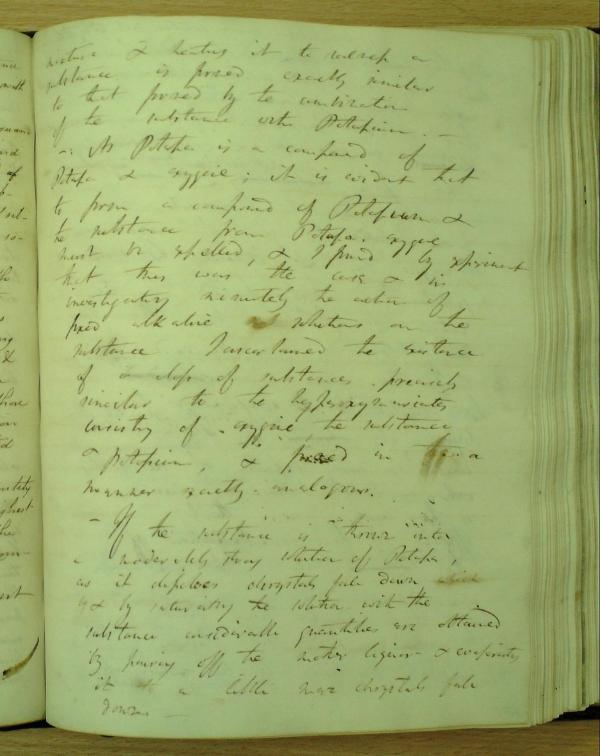 mixture & heating it to redness a
substance is formed exactly similar
to that formed by the combination
of the substance with Potassium. —
—. As Potassa is a compound of
Potassa & oxygene; it is evident that
to form a compound of Potassium &
the substance from Potassa. oxygene
must be expelled, & I found by experiment
that this was the case & in
investigating minutely the action of
fixed alkaline solutions on the
substance I ascertained the existence
of a class of substances precisely
similar to the hyperoxymuriates
consisting of oxygene the substance
& Potassium, & formed in a
manner exactly analogous.
— If the substance is thrown into
a moderately strong solution of Potassa,
as it dissolves chrystals fall down which
& by saturating the solution with the
substance considerable quantities are obtained
by pouring off the mother liquor & evaporating
it a little more chrystals fall
down —